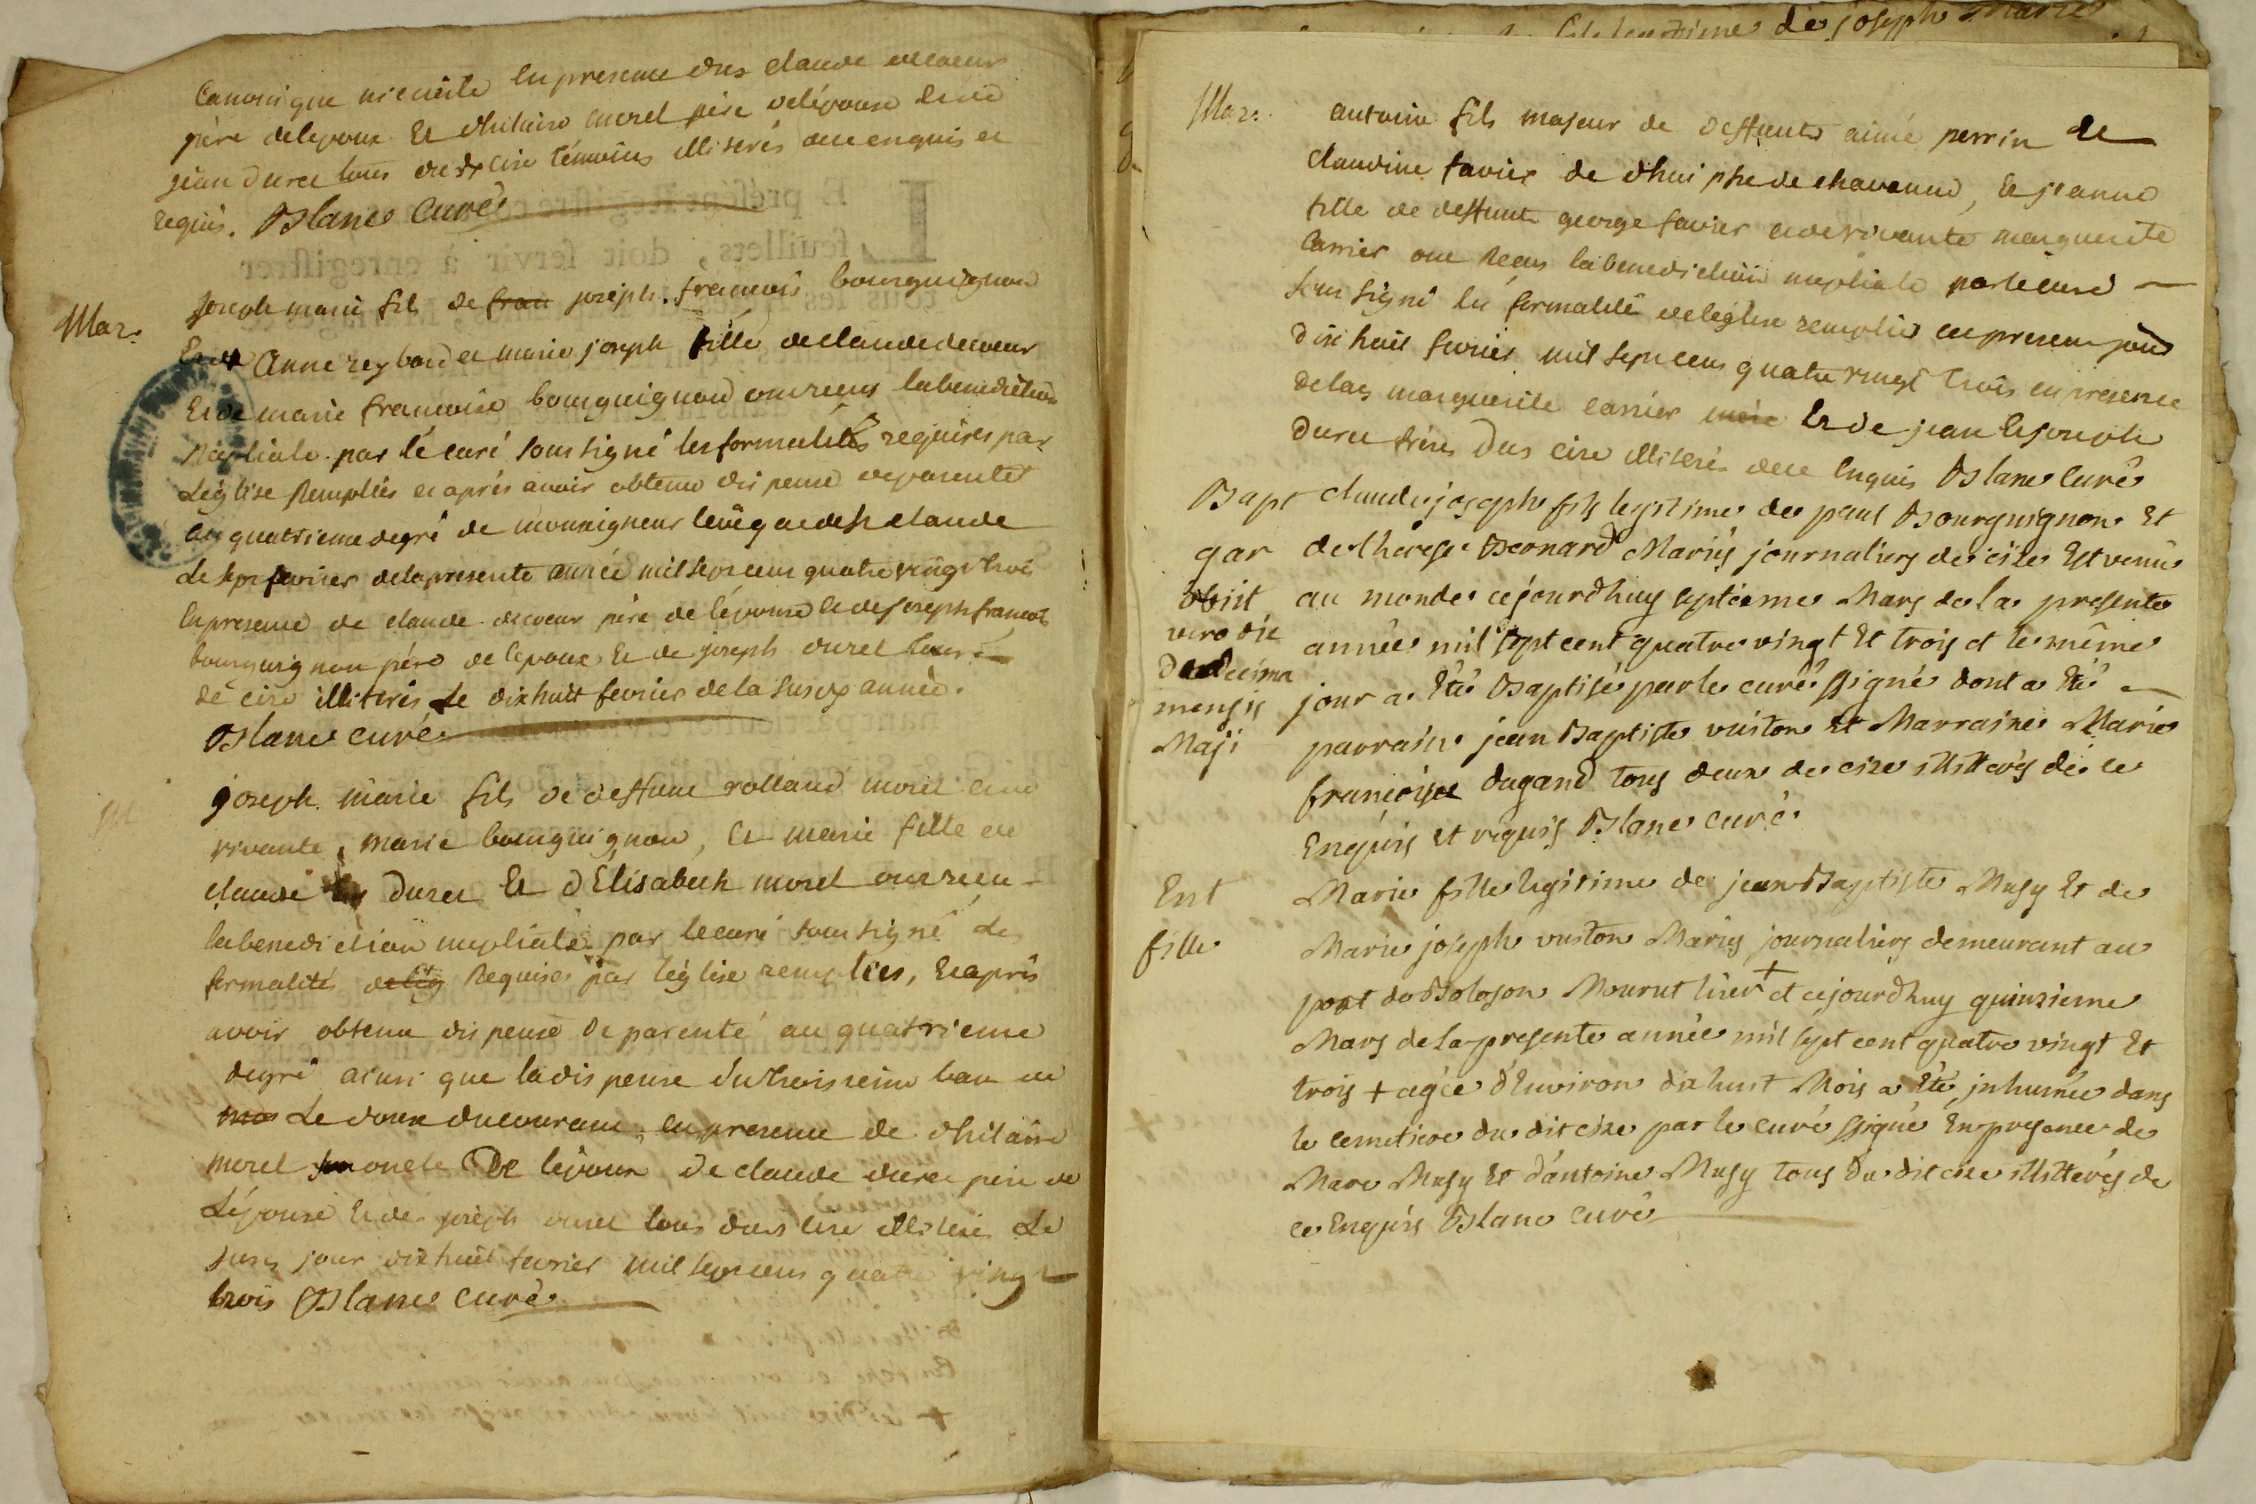 Canonique en presence des claude decoeur
père delepoux Et d'hilaire morel père delépouse
jean durel tous de cise témoins illiterés de ce enquis et
requis. Blanc Curé
Mar.
joseph marie fils de fran joseph. francois bourguignon
Et de Anne reybard et marie joseph fille declaude decoeur
Et de marie francoise bourguignon ont reçus labenediction
Nuptiale par le curé soussigné les formalités requises par
Léglise Remplies et aprés avoir obtenu dispense deparenté
au quatrieme degré de monseigneur levêque de st claude
Le sept fevrier delapresente année mil sept cent quatre vingt trois
En presence de claude decoeur père de lépouse et de joseph francois
bourguignon père de lepoux Et de joseph durel tous
de cise illiterés Le dix huit fevrier de la susd année.
Blanc curé
joseph. marie fils de deffunt rolland morel et de
vivante marie bourguignon, et marie fille de
claude durel Et d'Elisabeth morel ont reçu
labenediction nuptiale par le curé soussigné les
formalités deleg Requises par léglise remplies, Et aprés
avoir obtenu dispense de parenté au quatrieme
degré ainsi que la dispense du troisieme ban en
Le douze ducourant, en presence de d'hilaire
morel oncle De lépoux, De claude durel père de
Lépouse et de joseph durel tous dus cise illiteré Le
susd jour dixhuit fevrier mil sept cent quatre vingt
trois Blanc Curé
legitime de joseph Marie
Mar.
antoine fils majeur de deffunts aimé perrin et
claudine favier de d'hui phe de chavannes, et jeanne
fille de deffunt george favier et de vivante marguerite
carrier ont Reçus labenediction nuptiale par le curé
soussigné les formalités de léglise remplies ce present jour
dix huit fevrier mil sept cent quatre vingt trois en presence
de lad marguerite carrier mère et de jean et joseph
durel frères dus cise illiterés de ce Enquis Blanc Curé
Bapt claude joseph fils legitime de paul Bourguignon Et
gar de therese Bernard Mariés journaliers de cise Est venu
obiit au monde cejourdhuy septieme Mars de la presente
vero die année mil sept cent quatre vingt Et trois et le même
duodecima jour a Eté Baptisé par le curé ssigné dont a Eté
mensis parrain jean Baptiste vuiton Et Marraine Marie
Maji francoise dugand tous deux de cise illiterés de ce
Enquis et requis Blanc curé
Ent Marie fille legitime de jean Baptiste Musy Et de
fille Marie joseph vuiton Mariés journaliers demeurant au
port de Bolozon Mourut hier + et cejourdhuy quinzieme
Mars de la presente année mil sept cent quatre vingt Et
trois + agée d'Environ dix huit Mois a Eté inhumée dans
le cemetiere du dit cise par le curé ssigné En presence de
Marc Musy Et d'antoine Musy tous du dit cise illiterés de
ce Enquis Blanc curé